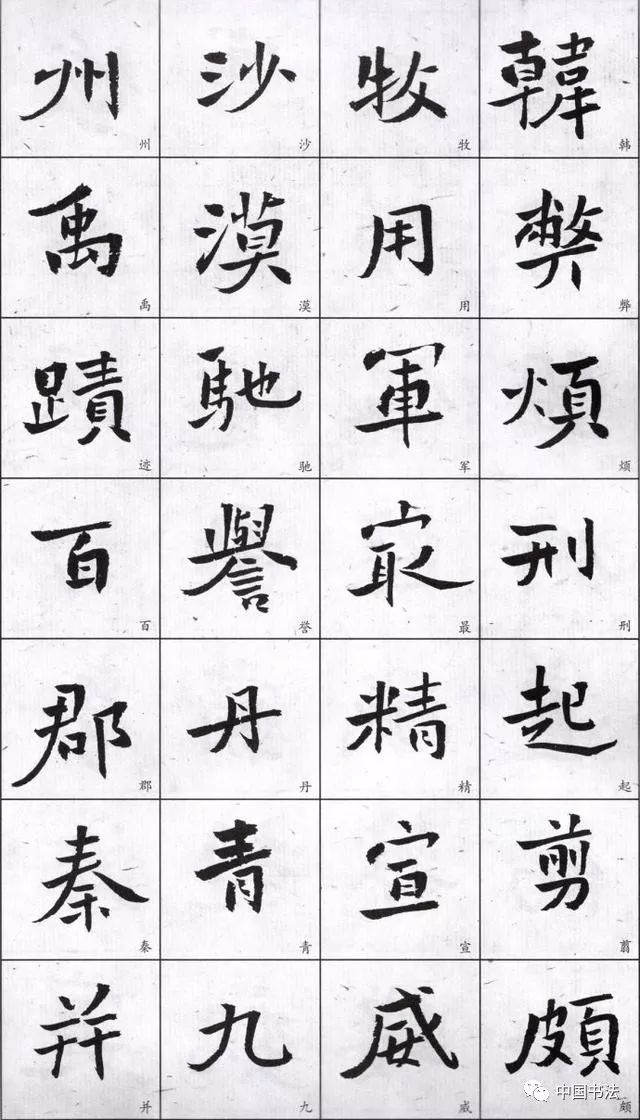 韓弊煩刑起剪頗
韩弊烦刑起翦颇
牧用軍最精宣威
牧用军最精宣威
沙漠馳譽丹青九
沙漠驰誉丹青九
州禹蹟百郡秦并
州禹迹百郡秦并
中国书法